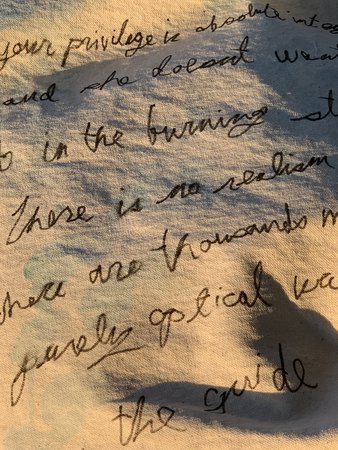 your privilege is absolute
and she doesnt want
in the burning
There is no realism
there are thousands
purely optical
the guide